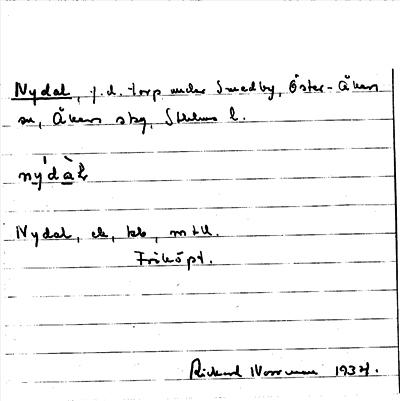 Nydal, f.d. torp under Smedby, Öster-Åkers
sn, Åkers skg, Sthlms l.
nýdàl
Nydal, ek, kb, mtl.
Friköpt.
Rickard Norrman 1934.